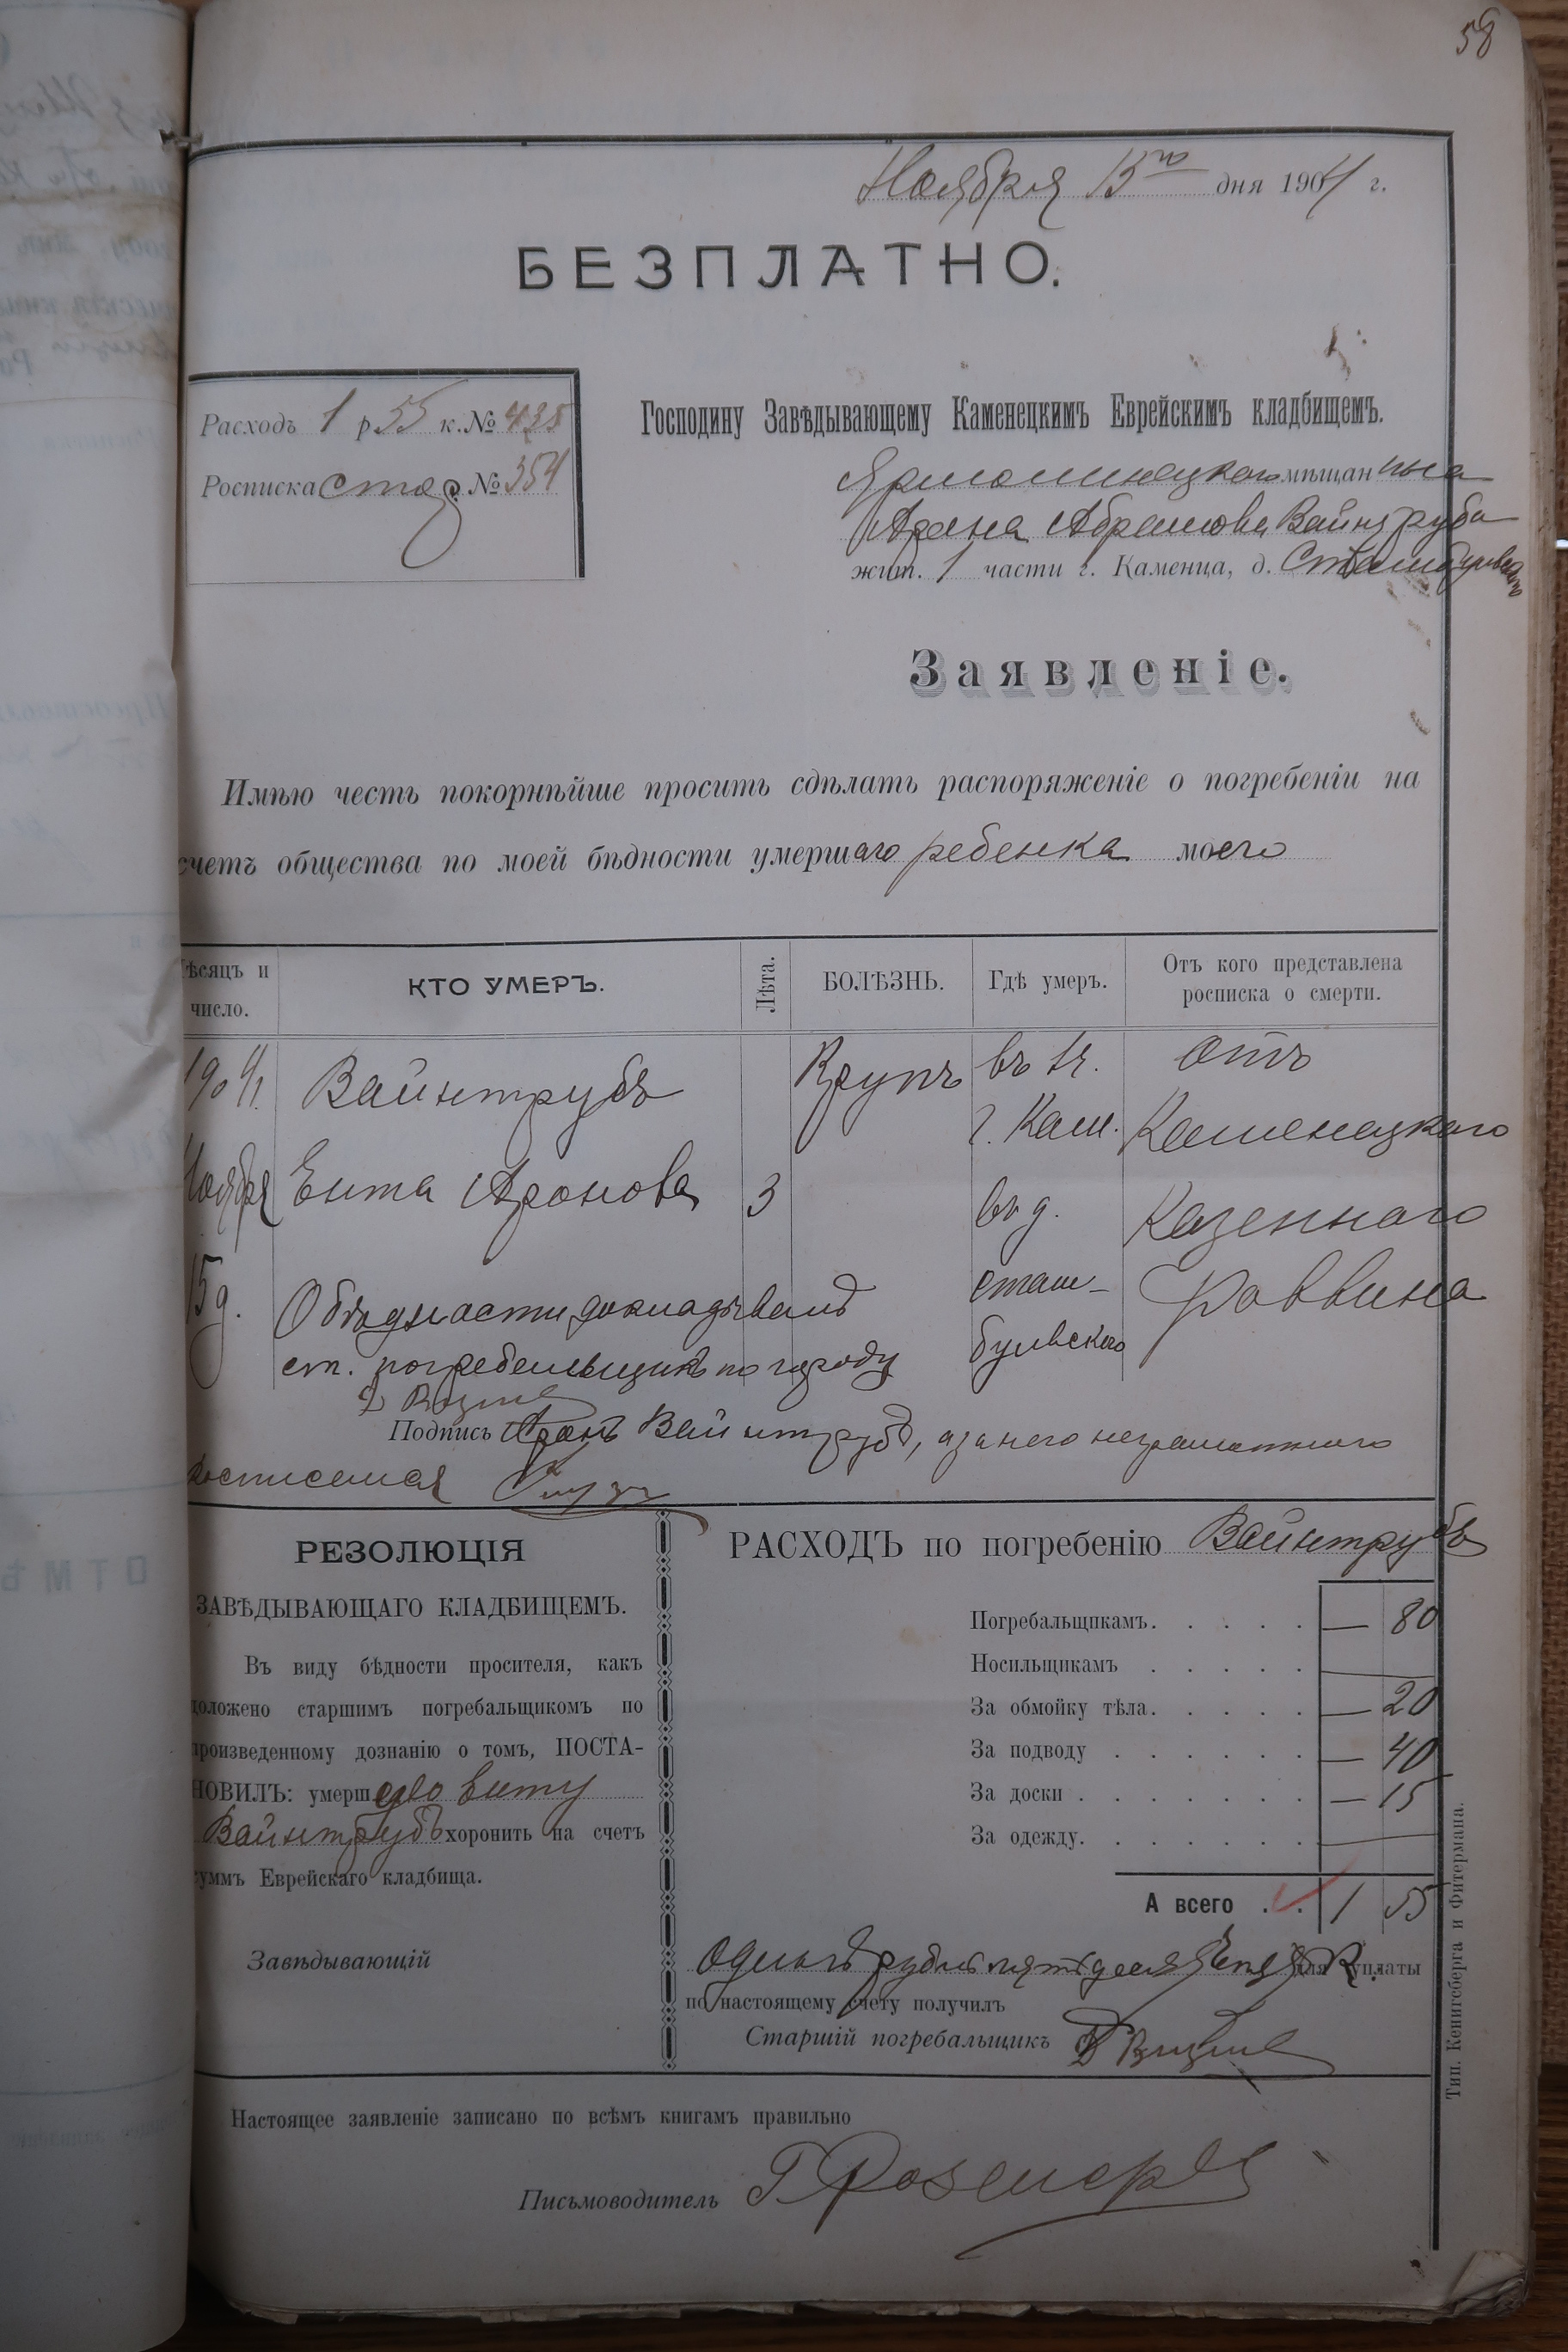 58
Ноября 15го дня 1904 г.
БЕЗПЛАТНО.
Расходъ 1 р 55 к. № 435
Росписка стар. № 354
Господину Завѣдывающему Каменецкимъ Еврейскимъ кладбищемъ.
Ярмолинецкого мѣщанина
Арона Абрамова Вайнтруба
жит. 1 части г. Каменца, д.
Заявленіе.
Имѣю честь покорнѣйше просить сдѣлать распоряженіе о погребеніи на
счетъ общества по моей бѣдности умершаго ребенка моего
Мѣсяцъ и число.
КТО УМЕРЪ.
Лѣта.
БОЛѢЗНЬ.
Гдѣ умеръ.
Отъ кого представлена росписка о смерти.
1904 г. Вайнтрубъ Крупъ въ 1ч. Отъ
г. Кам. Каменецкаго
Ноября Ента Аронова 3 въ д. Казеннаго
15 д. Сташ- Раввина
О бѣдности докладывалъ булвского
ст. погребельщикъ по городу
Подпись Аронъ Вайнтрубъ, а за него неграмотного
росписался
РЕЗОЛЮЦІЯ
ЗАВѢДЫВАЮЩАГО КЛАДБИЩЕМЪ.
Въ виду бѣдности просителя, какъ
доложено старшимъ погребальщикомъ по
произведенному дознанію о томъ, ПОСТА-
НОВИЛЪ: умерш Енту
Вайнтрубъ хоронить на счетъ
суммъ Еврейскаго кладбища.
Завѣдывающій
РАСХОДЪ по погребенію Вайнтрубъ
Погребальщикамъ. . . . . — 80
Носильщикамъ . . . . . —
За обмойку тѣла. . . . . — 20
За подводу . . . . . . — 40
За доски . . . . . . . — 15
За одежду. . . . . . . —
А всего . . 1 55
Одинъ рубль пятьдесятъ пять к. для уплаты
по настоящему счету получилъ
Старшій погребальщикъ
Настоящее заявленіе записано по всѣмъ книгамъ правильно
Письмоводитель Г.
Тип. Кенигсберга и Фитермана.